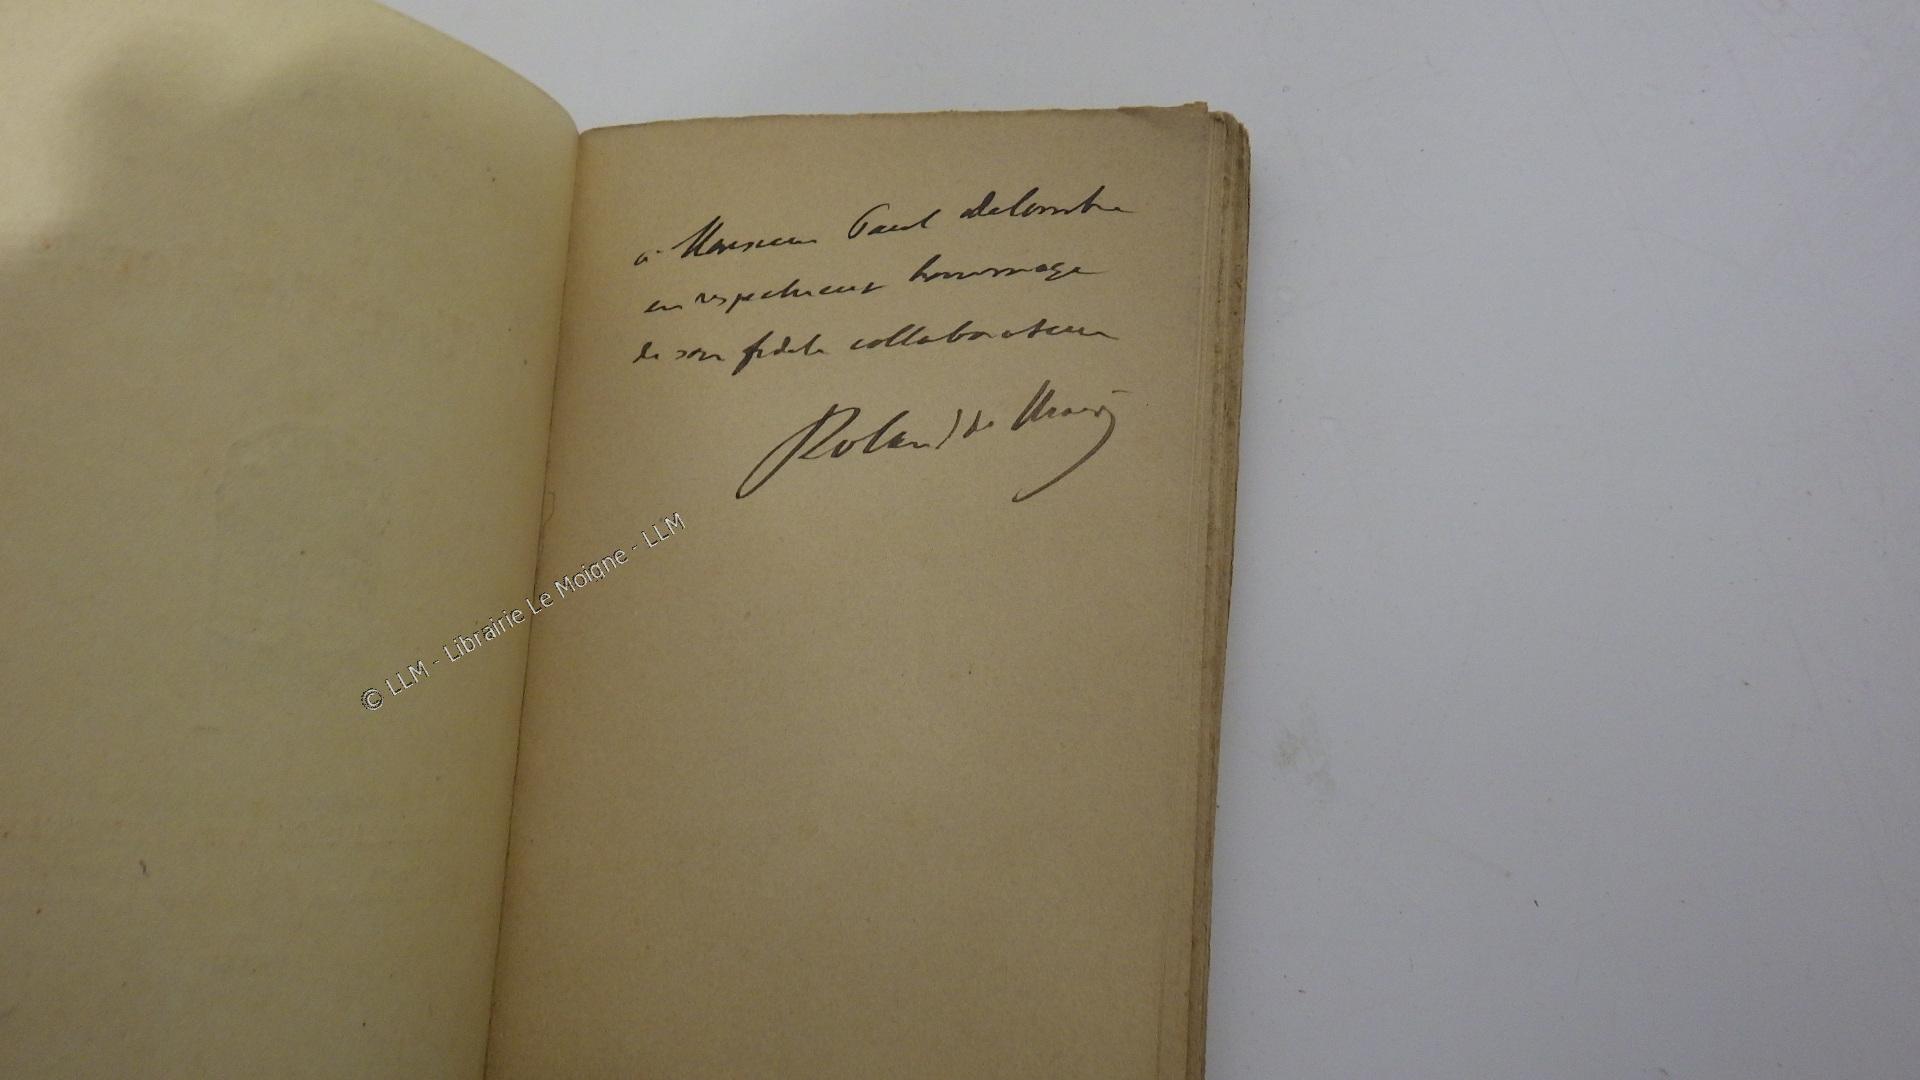 à Monsieur Paul Delombre
en respectueux hommage
de son fidèle collaborateur
Roland de Marès
© LLM - Librairie Le Moigne - LLM